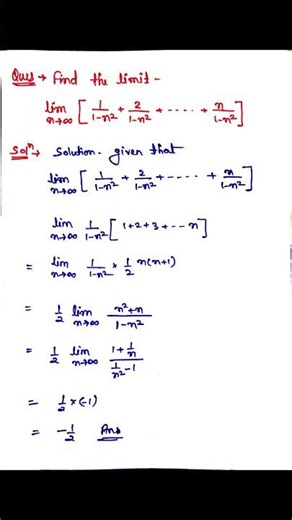 Ques → Find the limit -
lim n→∞ [ 1/(1-n²) + 2/(1-n²) + ----- + n/(1-n²) ]
Solⁿ → Solution - given that
lim n→∞ [ 1/(1-n²) + 2/(1-n²) + ----- + n/(1-n²) ]
lim n→∞ 1/(1-n²) [ 1+2+3+---n ]
= lim n→∞ 1/(1-n²) × 1/2 n(n+1)
= 1/2 lim n→∞ (n²+n)/(1-n²)
= 1/2 lim n→∞ (1+1/n)/(1/n²-1)
= 1/2 × (-1)
= -1/2 Ans